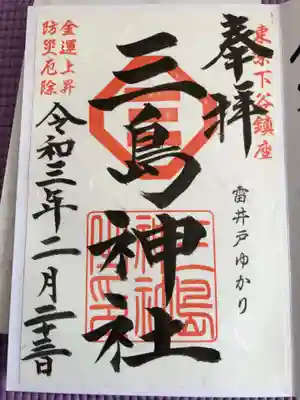 東京下谷鎮座
奉拝
雷井戸ゆかり
三島神社
金運上昇
防災厄除
令和三年二月二十三日